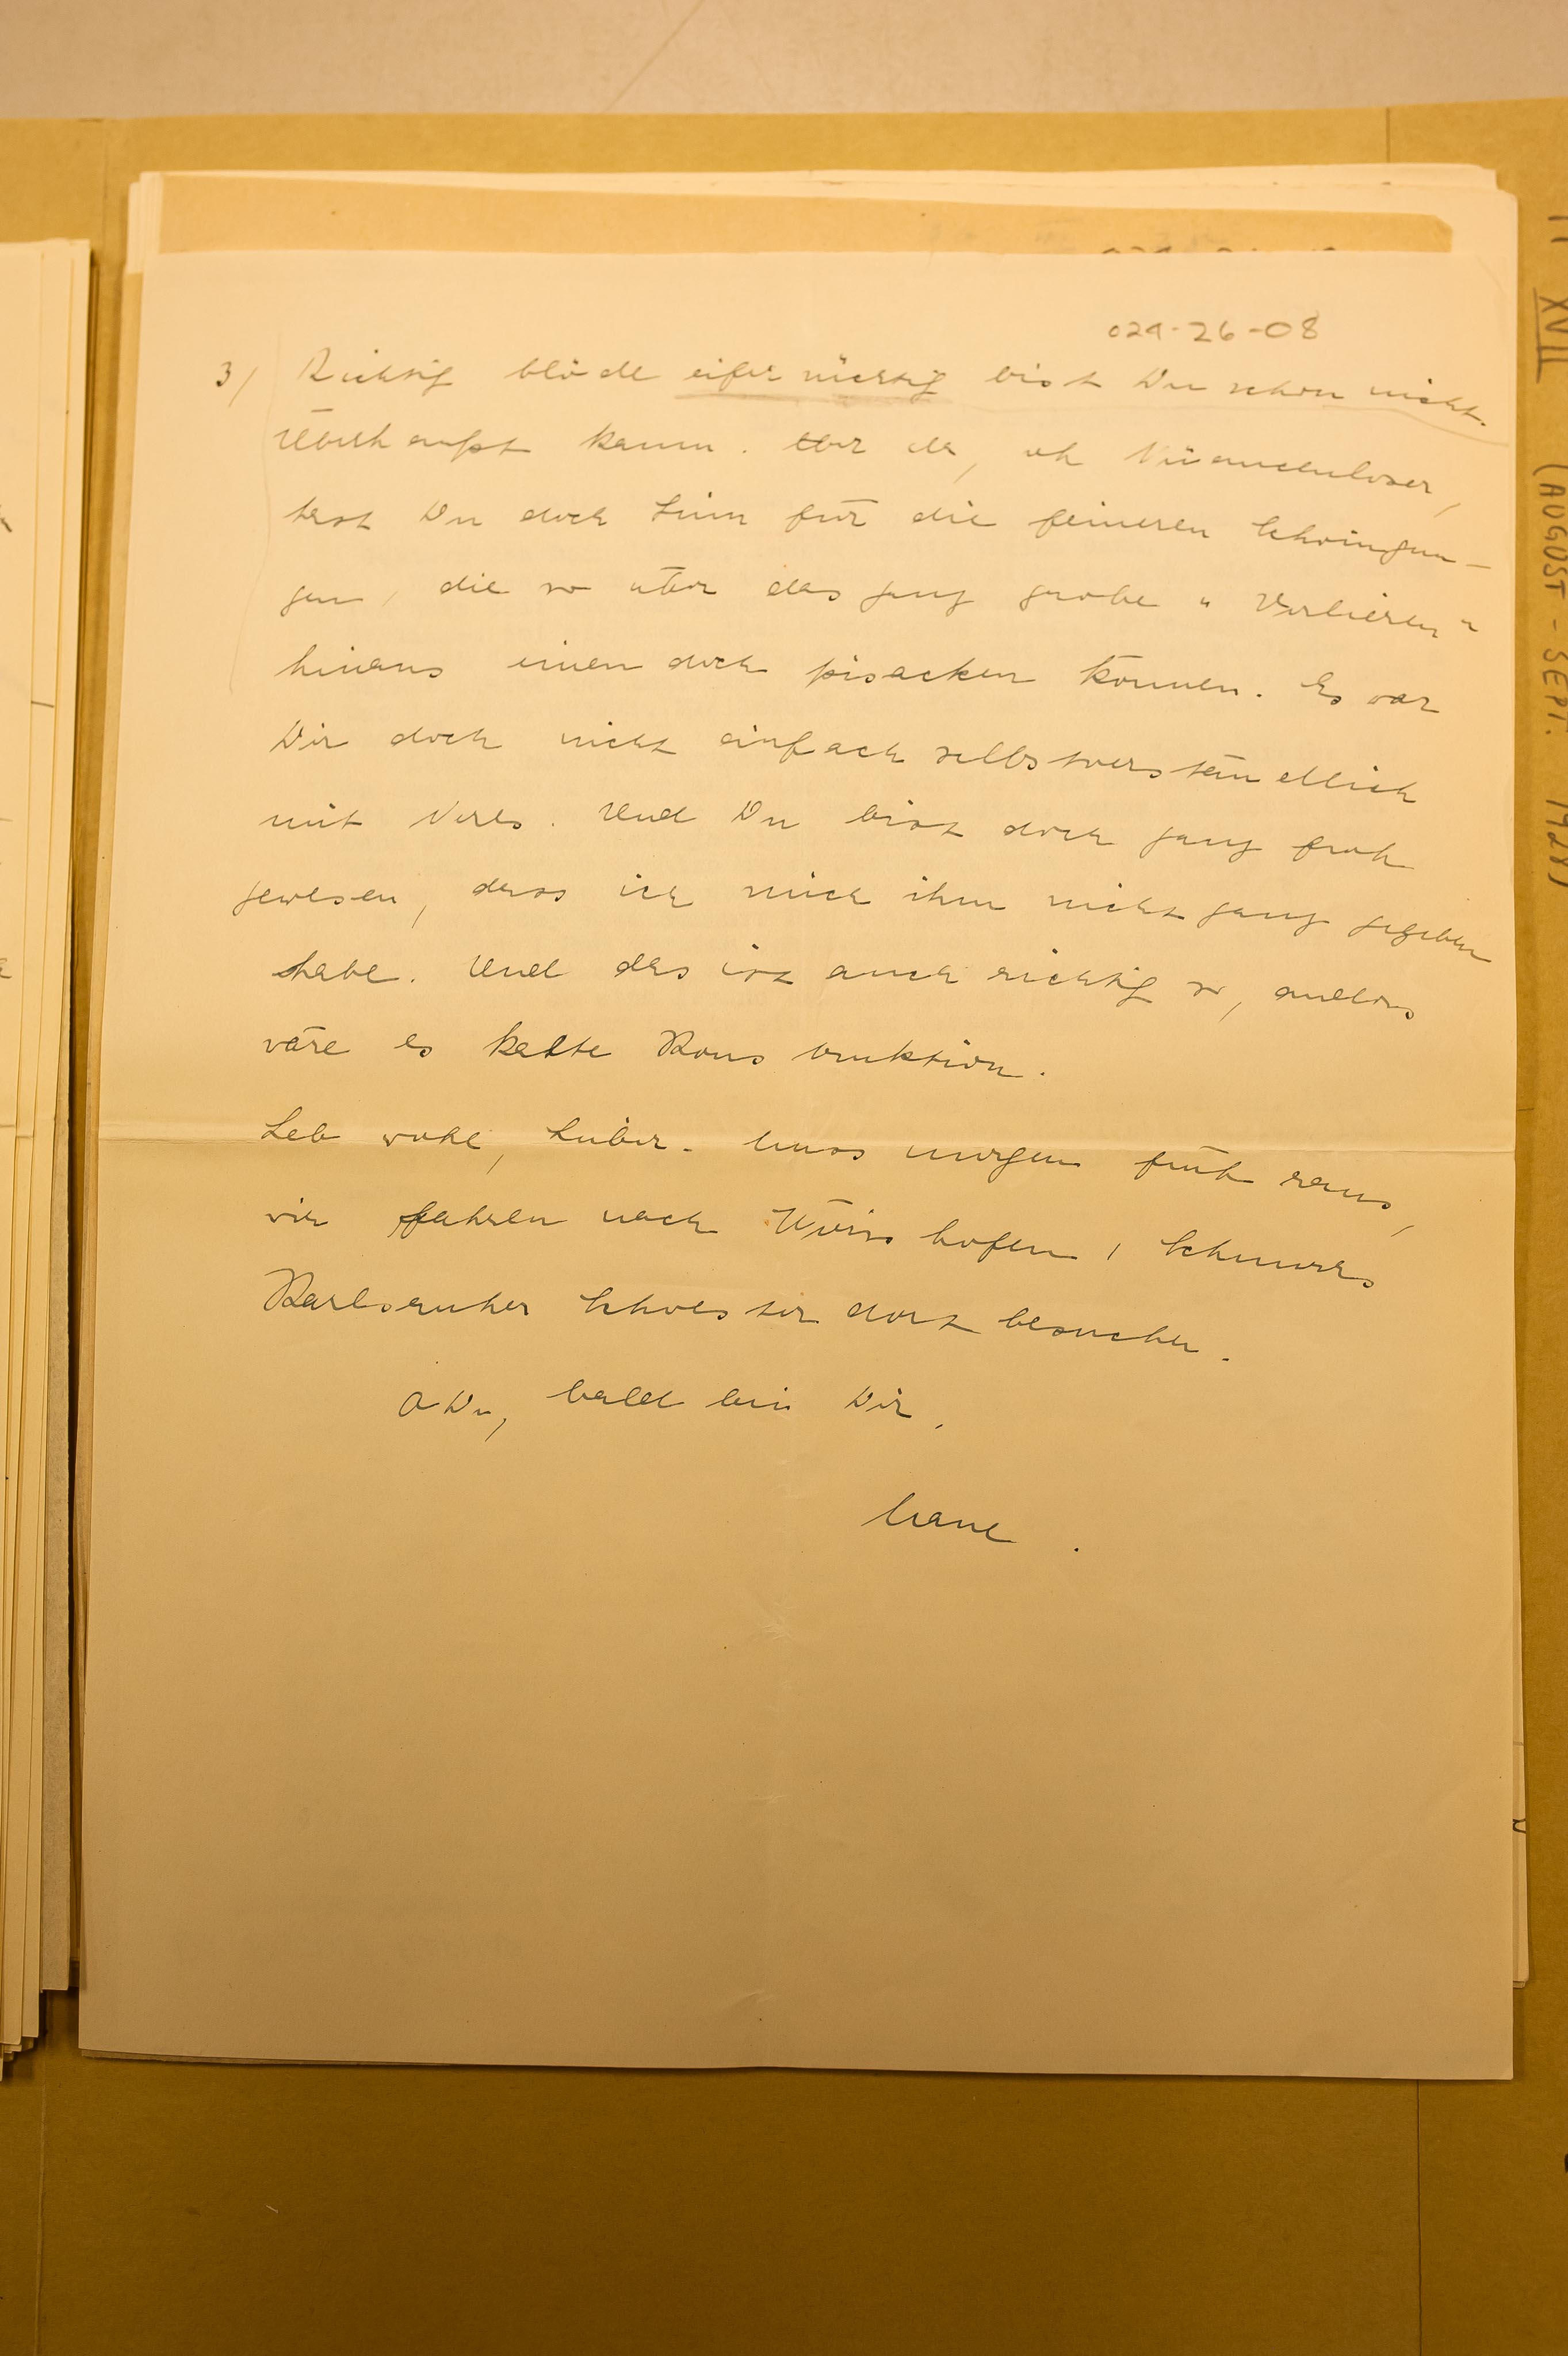 029-26-08
3/ Richtig blöde eifersüchtig bist Du schon nicht.
Überhaupt kaum. Aber da, oh Nüancenloser,
hast Du doch Sinn für die feineren Schwingun-
gen, die so über das ganz grobe "Verlieren"
hinaus einen doch pisacken können. Es war
Dir doch nicht einfach selbstverständlich
mit Niels. Und Du bist doch ganz froh
gewesen, dass ich mich ihm nicht ganz gegeben
habe. Und das ist auch richtig so, anders
wäre es kalte Konstruktion.
Leb wohl, Lieber. Muss morgen früh raus,
wir fahren nach Wörishofen,
Karlsruher Schwester dort besuchen.
O Du, bald bin Dir.
Maue.
XVII (AUGUST - SEPT. 1928)